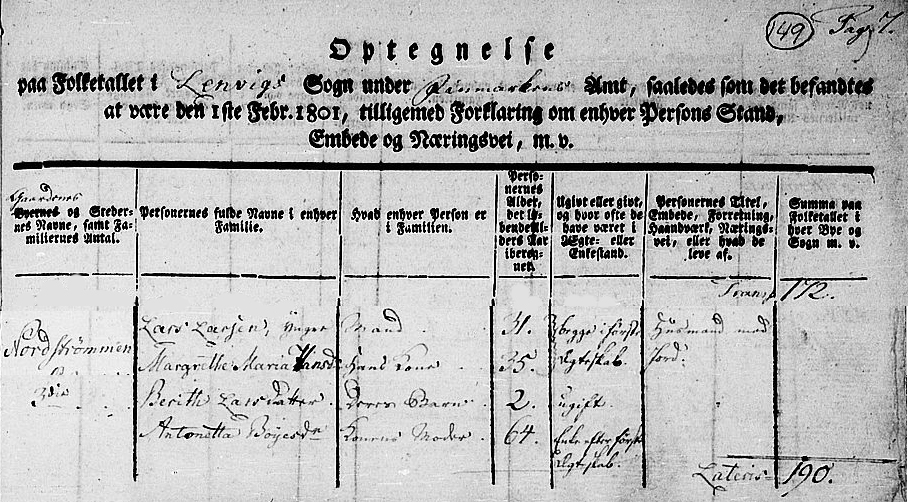 149 Pag 7.
Optegnelse
paa Folketallet i Lenvigs Sogn under Finmarkens Amt, saaledes som det befandtes
at være den 1ste Febr. 1801, tilligemed Forklaring om enhver Persons Stand,
Embede og Næringsvei, m. v.
Gaardenes
Byernes og Steder-
nes Navne, samt Fa-
miliernes Antal.
Personernes fulde Navne i enhver
Familie.
Hvad enhver Person er
i Familien.
Perso-
nernes
Alder,
det lø-
bende Al-
ders Aar
ibereg-
net.
Ugivt eller givt,
og hvor ofte de
have været i
Ægte- eller
Enkestand.
Personernes Titel,
Embede, Forretning,
Haandværk, Nærings-
vei, eller hvad de
leve af.
Summa paa
Folketallet i
hver Bye og
Sogn m. v.
Transp 172.
Lars Larsen, Ynger Mand 31. begge i først Husmand med
Nordströmmen
Margrethe Maria Hansd Hans Kone 35. Ægteskab. Jord.
3die Berith Larsdatter Deres Barn 2. ugift
Antonetta Böyesdr Konens Moder 64. Enke efter først
Ægteskab.
Lateris 190.